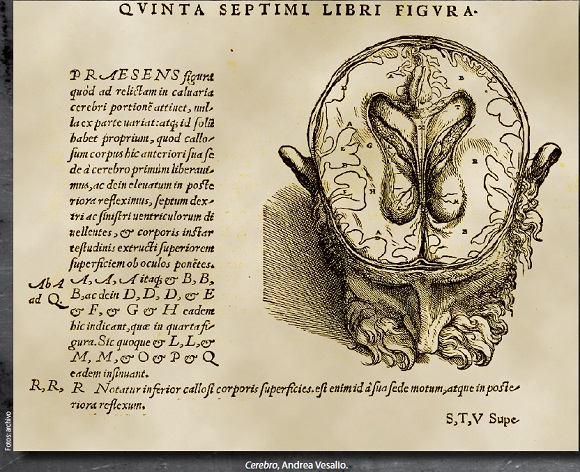 QVINTA SEPTIMI LIBRI FIGVRA.
PRAESENS figura
quòd ad relictam in caluaria
cerebri portionē attinet, nul-
la ex parte uariat: atq; id solū
habet proprium, quod callo-
sum corpus hic anteriori sua se
de à cerebro primùm liberaui-
mus, ac dein eleuatum in poste
riora refleximus, septum dex-
tri ac sinistri uentriculorum di
uellentes, & corporis instar
testudinis extructi superiorem
superficiem ob oculos ponētes.
Ab A A, A, A itaq; & B, B,
ad Q. B, ac dein D, D, D, & E
& F, & G & H eadem
hic indicant, quæ in quarta fi-
gura. Sic quoque & L, L, &
M, M, & O & P & Q
eadem insinuant.
R, R, R Notatur inferior callosi corporis superficies. est enim id à sua sede motum, atque in poste-
riora reflexum.
S, T, V Supe
B
B
G
H
B
Fotos: archivo
Cerebro, Andrea Vesalio.